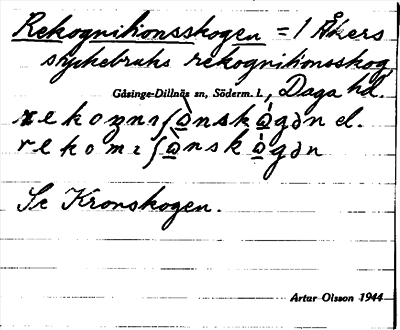 Rekognitionsskogen = 1 Åkers
styckebruks rekognitionsskog,
Gåsinge-Dillnäs sn, Söderm. l., Daga hd.
rekoŋnɪʃɷ̀nskɷ́gən el.
rekomɪʃɷ̀nskɷ́gən
Se Kronskogen.
Artur Olsson 1944